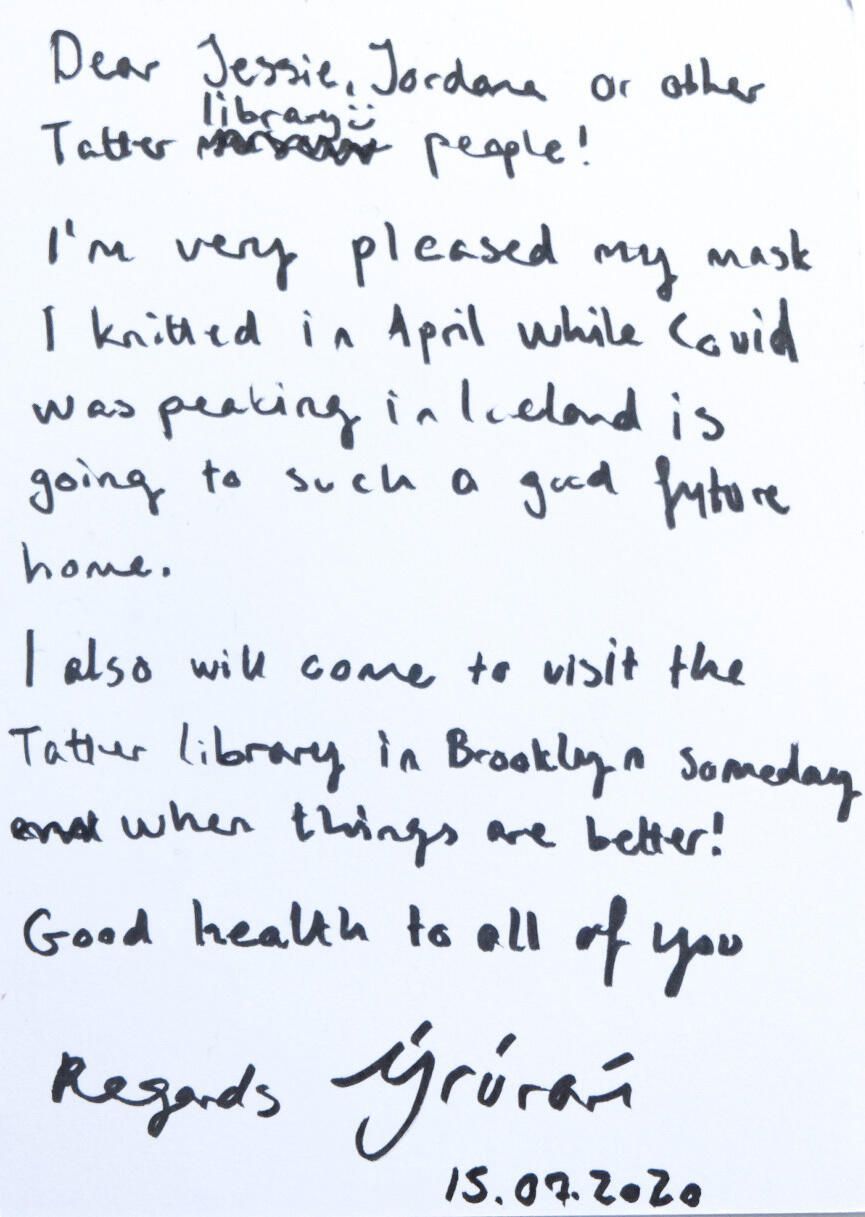 Dear Jessie, Jordana or other
library
Tatter people!
I'm very pleased my mask
I knitted in April while Covid
was peaking in Iceland is
going to such a good future
home.
I also will come to visit the
Tatter library in Brooklyn someday
when things are better!
Good health to all of you
Regards Ýrúrarí
15.07.2020